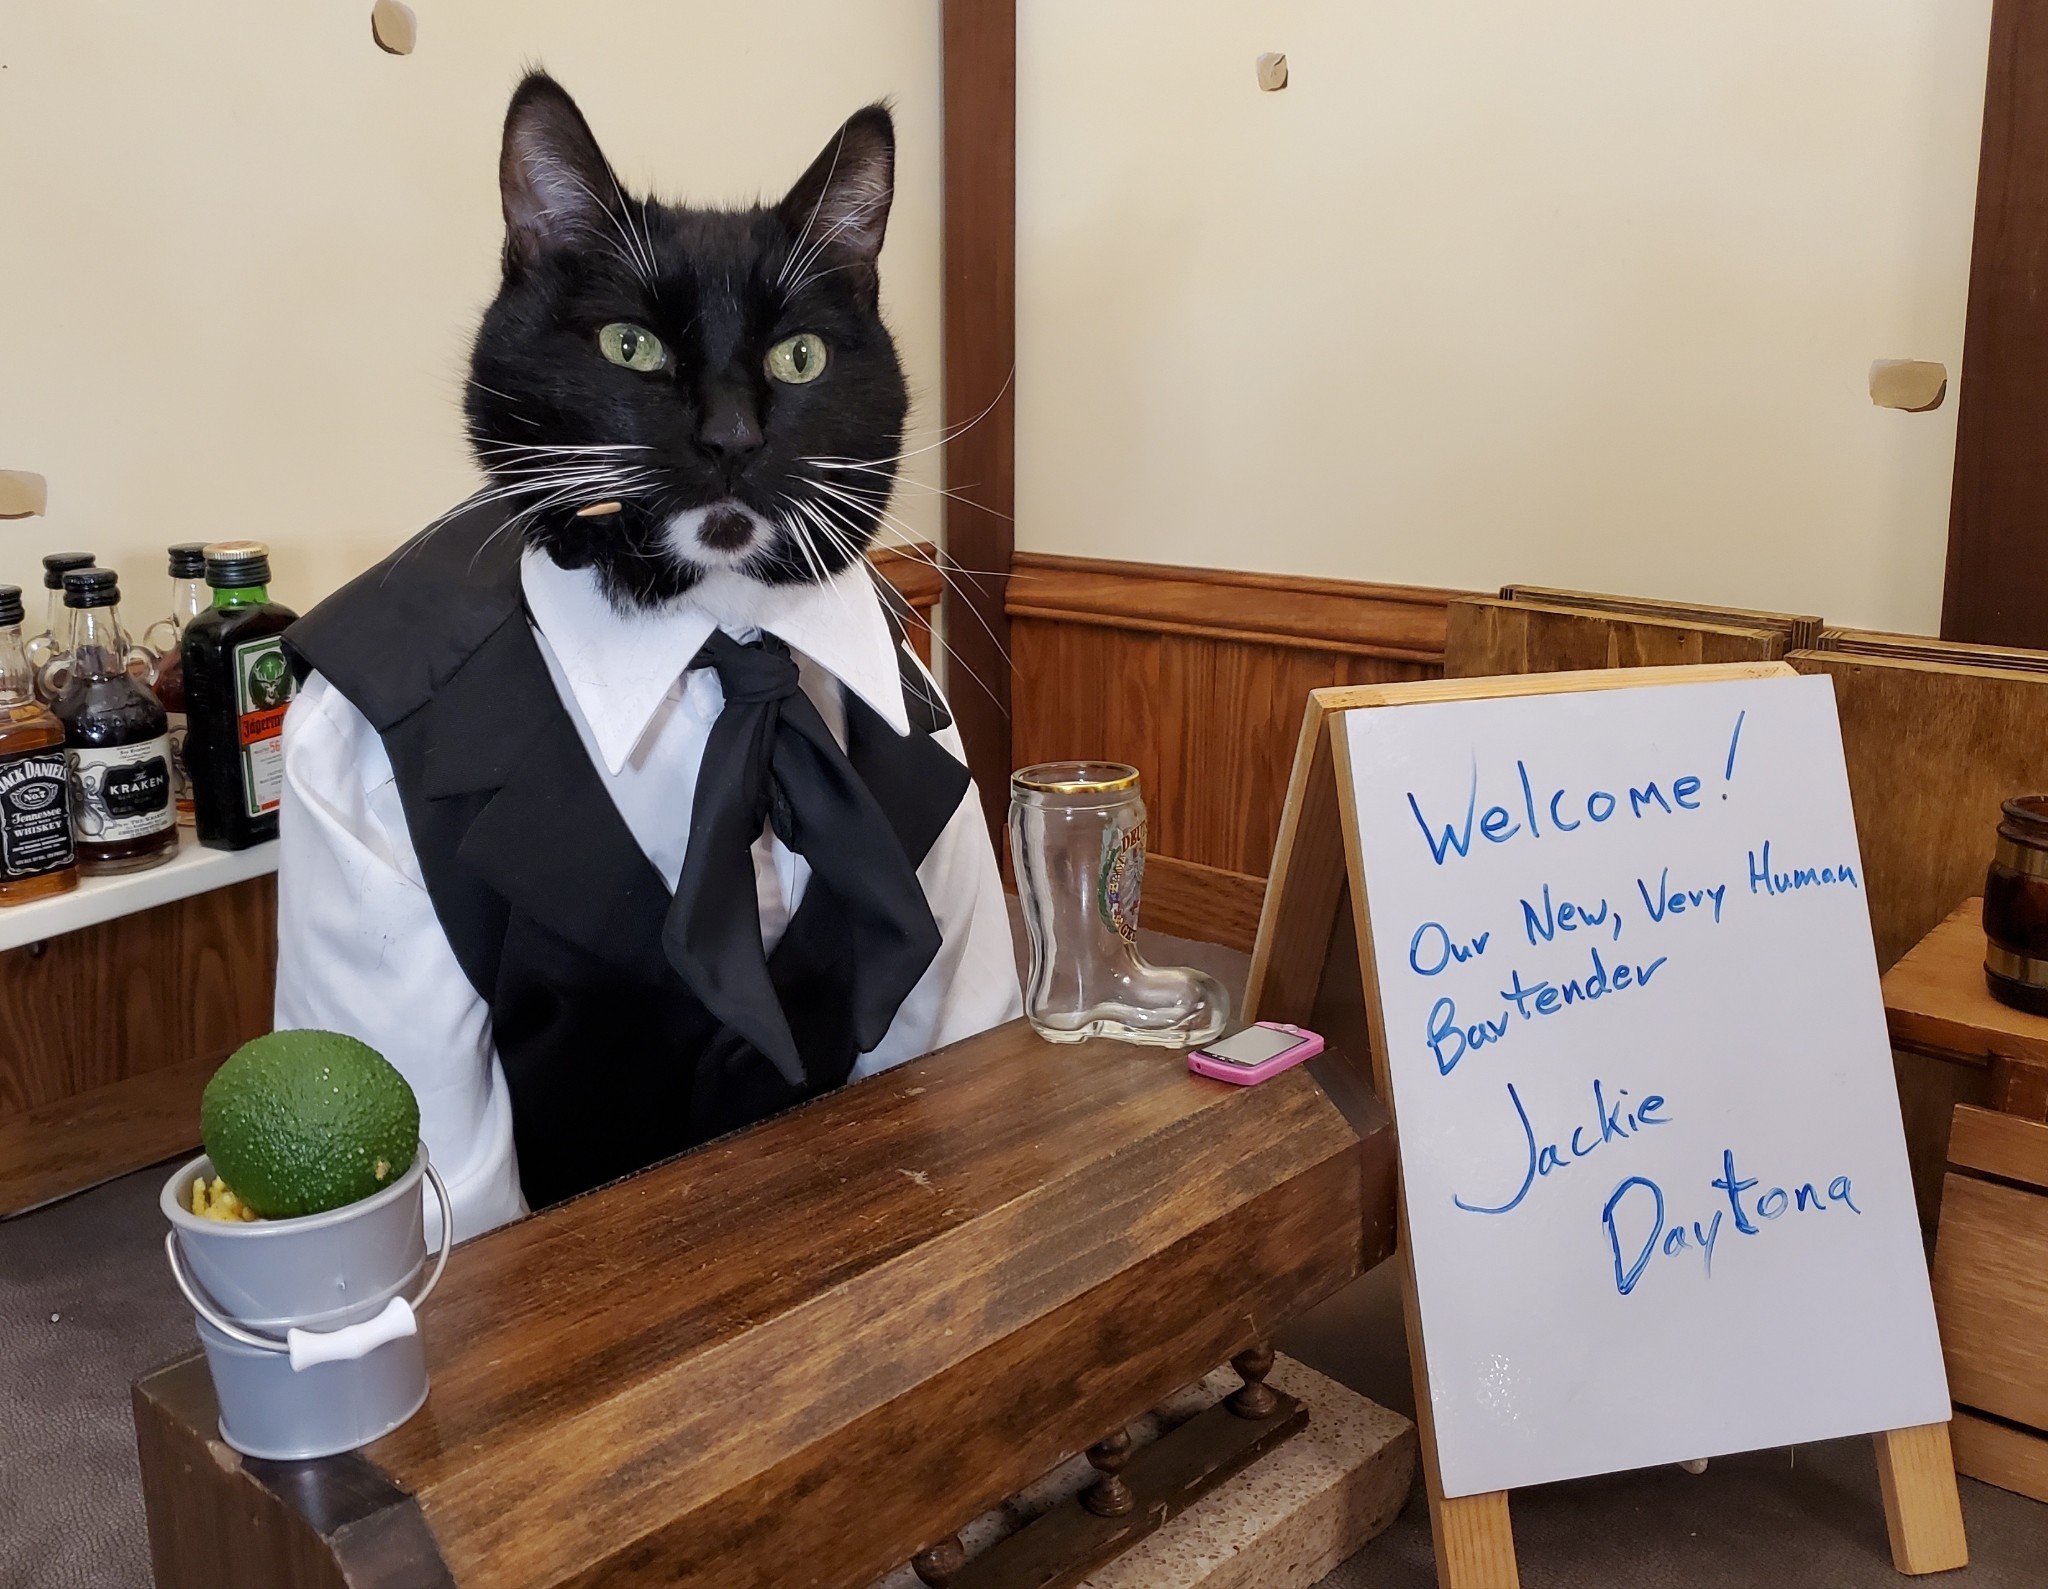 JACK DANIEL'S
OLD
No.7
Tennessee
WHISKEY
THE
KRAKEN
Jägerm
56
DEU
Welcome!
Our New, Very Human
Bartender
Jackie
Daytona